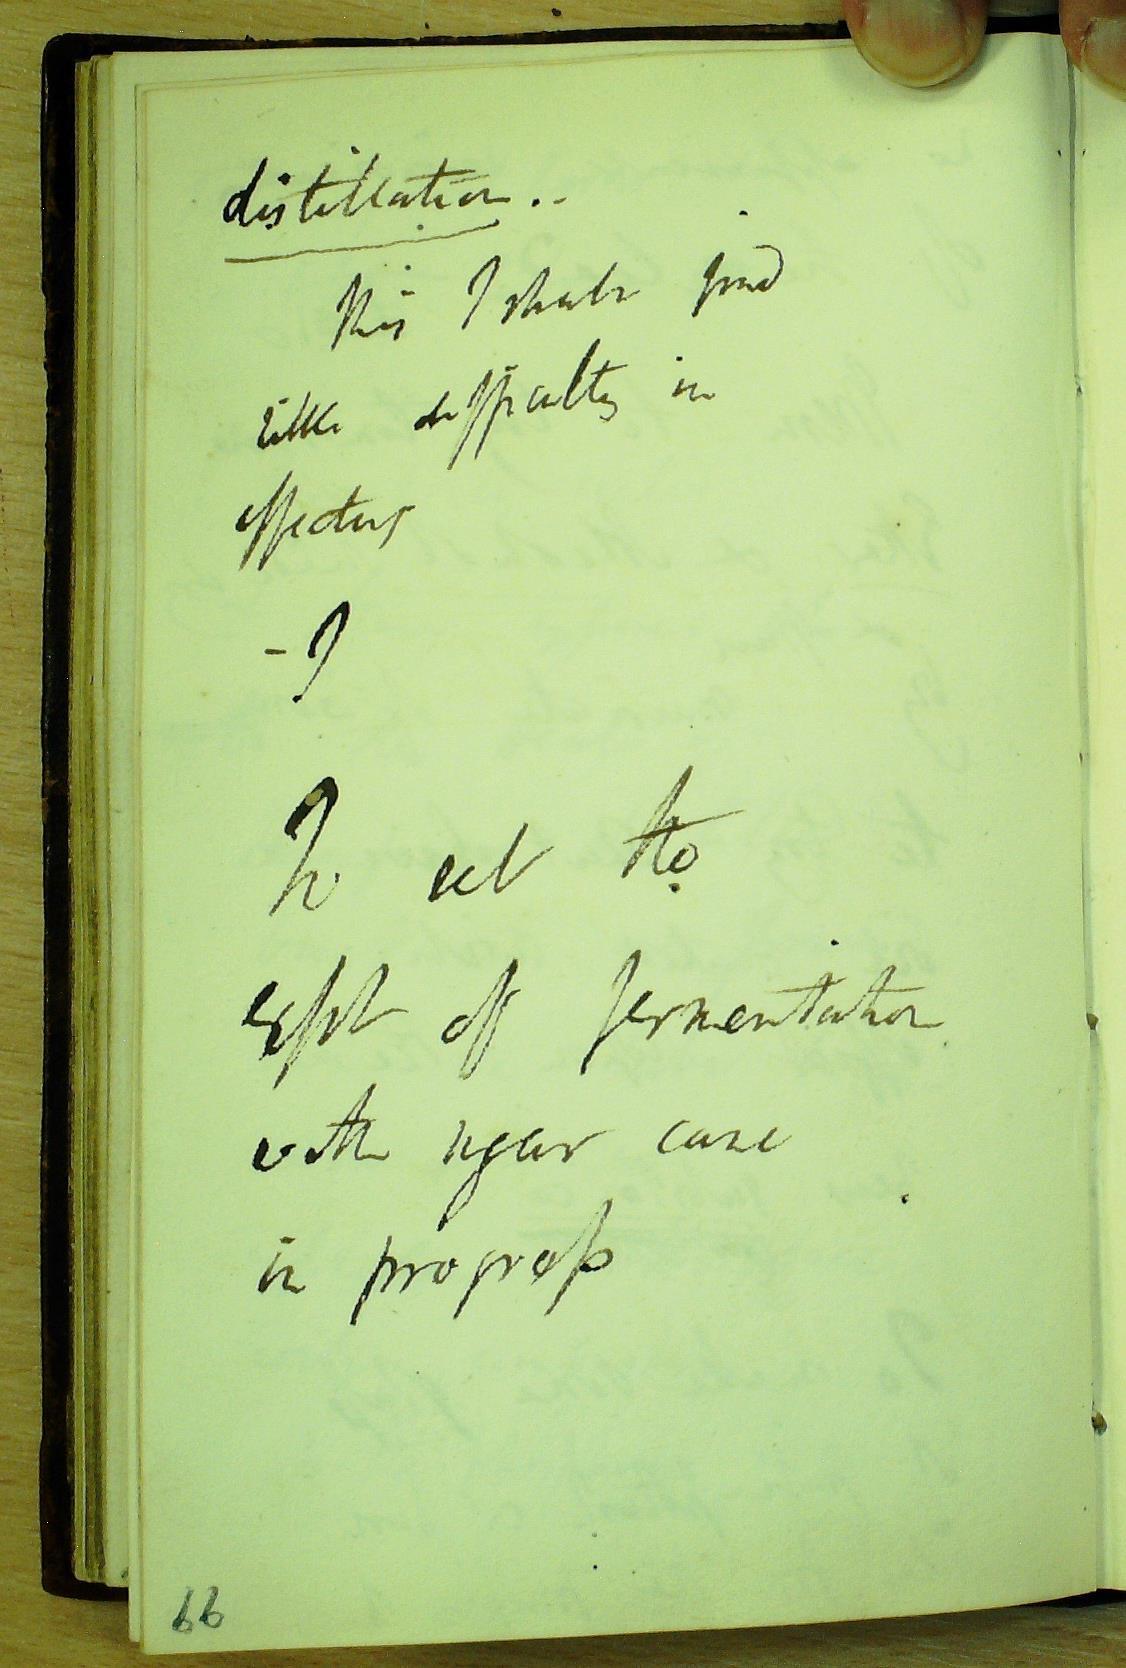 distillation. -
this I shall find
little difficulty in
effecting
- I
To set the
expt of fermentation
with sugar cane
in progress
66